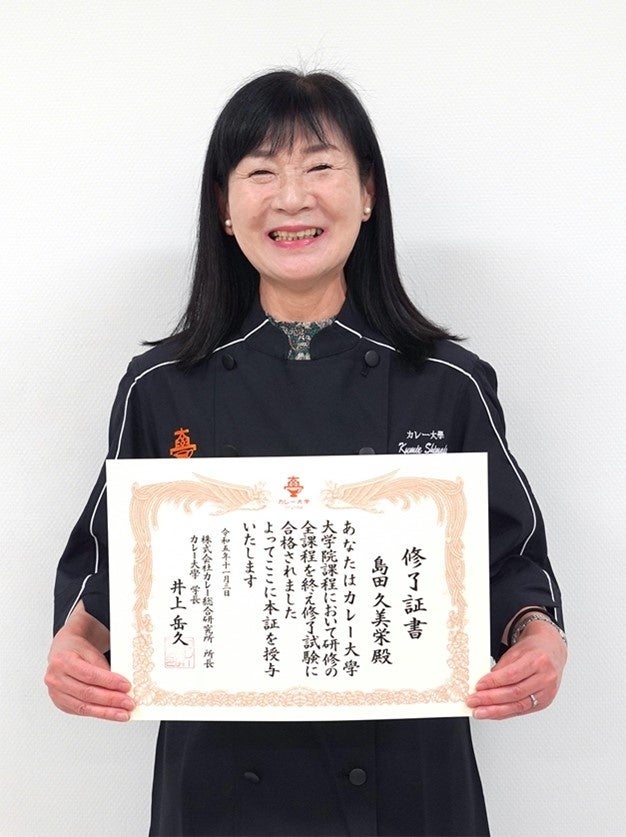 カレー大學
Kumie
カレー大學
修了証書
島田 久美栄 殿
あなたはカレー大學
大学院課程において研修の
全課程を終え修了試験に
合格されました
よってここに本証を授与
いたします
令和五年十一月三日
株式会社カレー総合研究所 所長
カレー大學 学長
井上 岳久